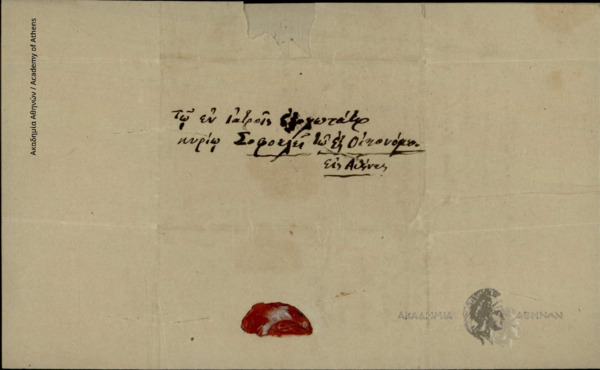 Ακαδημία Αθηνών / Academy of Athens
Τῷ ἐν ἰατροῖς ἐξοχωτάτῳ
κυρίῳ Σοφοκλεῖ τῷ ἐξ Οἰκονόμων
εἰς Ἀθήνας
ΑΚΑΔΗΜΙΑ ΑΘΗΝΩΝ